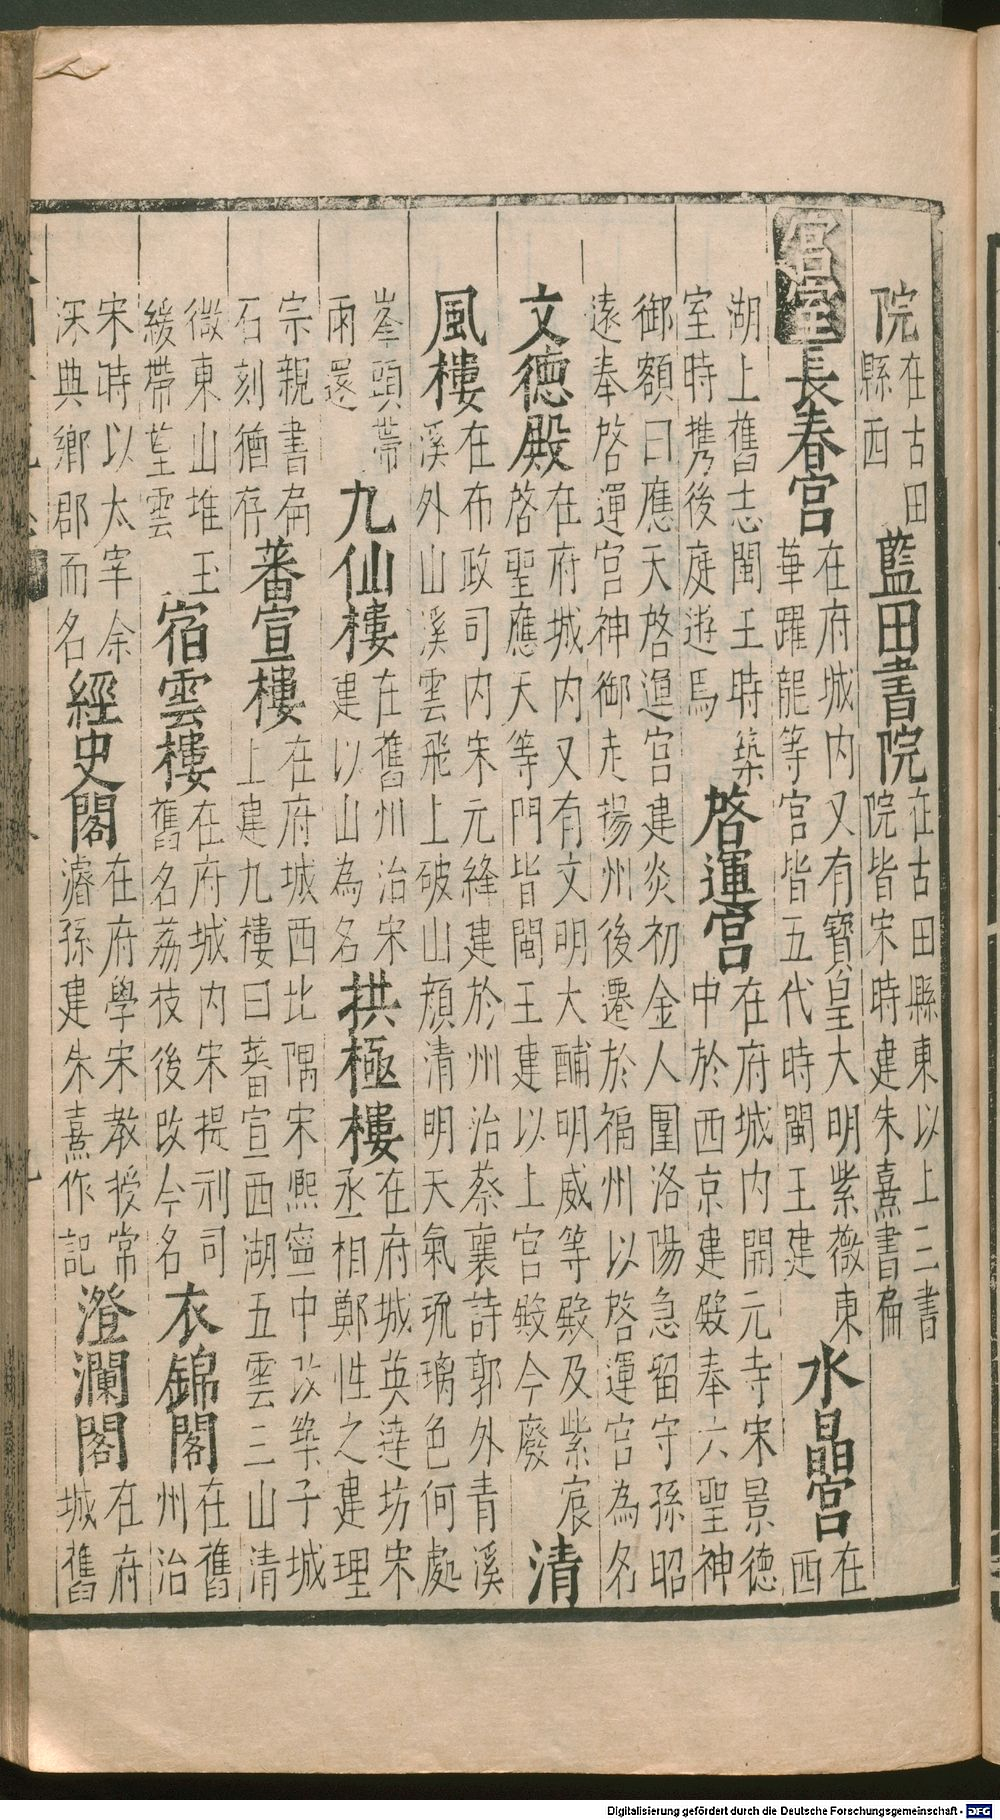 院在古田縣西藍田書院在古田縣東以上三書院皆宋時建朱熹書扁
宮室長春宮在府城内又有寶皇大明紫薇東華躍龍等宮皆五代時閩王建水晶宮在西
湖上舊志閩王時築室時携後庭遊馬啓運宮在府城内開元寺宋景德中於西京建殿奉六聖神
御額曰應天啓運宮建炎初金人圍洛陽急留守孫昭遠奉啓運宮神御走揚州後遷於福州以啓運宮為名
文德殿在府城内又有文明大酺明威等殿及紫宸啓聖應天等門皆閩王建以上宮殿今廢清
風樓在布政司内宋元絳建於州治蔡襄詩郭外青溪溪外山溪雲飛上破山顔清明天氣琉璃色何處
峯頭帶雨還九仙樓在舊州治宋建以山為名拱極樓在府城英達坊宋丞相鄭性之建理
宗親書扁石刻猶存蕃宣樓在府城西北隅宋熈寧中改築子城上建九樓曰蕃宣西湖五雲三山清
微東山堆玉緩帶望雲宿雲樓在府城内宋提刑司舊名荔枝後改今名衣錦閣在舊州治
宋時以太宰余深典鄉郡而名經史閣在府學宋教授常濬孫建朱熹作記澄瀾閣在府城舊
Digitalisierung gefördert durch die Deutsche Forschungsgemeinschaft - DFG